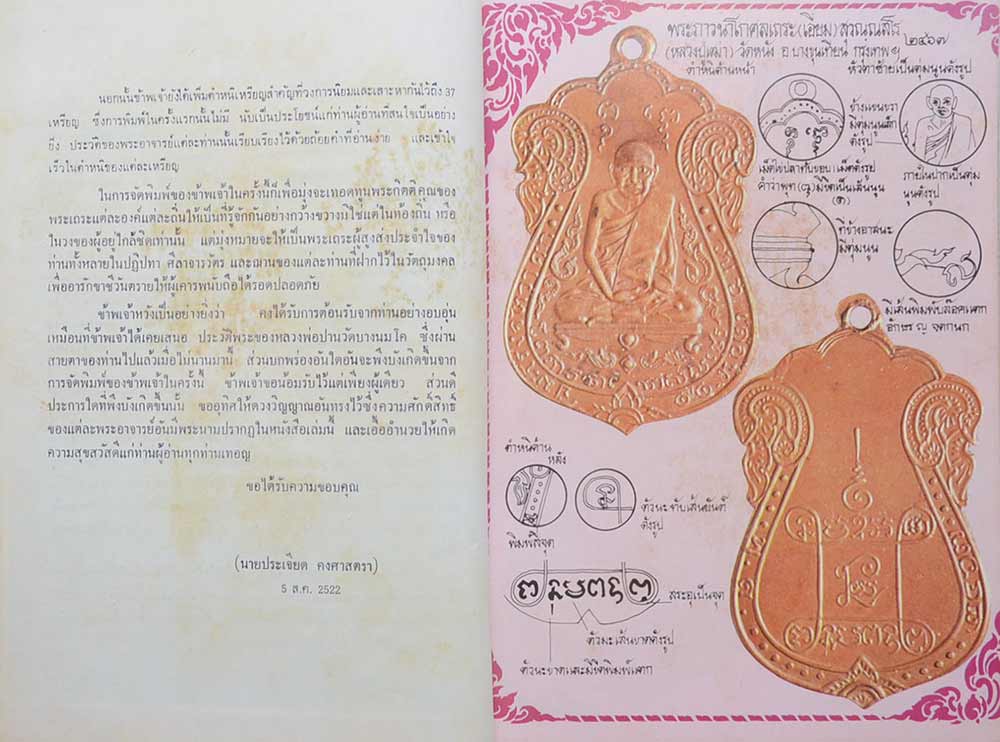 นอกนั้นข้าพเจ้ายังได้เพิ่มตำหนิเหรียญสำคัญที่วงการนิยมและเสาะหากันไว้ถึง 37
เหรียญ ซึ่งการพิมพ์ในครั้งแรกนั้นไม่มี นับเป็นประโยชน์แก่ท่านผู้อ่านที่สนใจเป็นอย่าง
ยิ่ง ประวัติของพระอาจารย์แต่ละท่านนั้นเรียบเรียงไว้ด้วยถ้อยคำที่อ่านง่าย และเข้าใจ
เร็วในตำหนิของแต่ละเหรียญ
ในการจัดพิมพ์ของข้าพเจ้าในครั้งนี้ก็เพื่อมุ่งจะเทอดทูนพระกิตติคุณของ
พระเถระแต่ละองค์แต่ละถิ่นให้เป็นที่รู้จักกันอย่างกว้างขวางมิใช่แต่ในท้องถิ่น หรือ
ในวงของผู้อยู่ใกล้ชิดเท่านั้น แต่มุ่งหมายจะให้เป็นพระเถระผู้สูงส่งประจำใจของ
ท่านทั้งหลายในปฏิปทา ศีลาจารวัตร และฌานของแต่ละท่านที่ฝากไว้ในวัตถุมงคล
เพื่ออารักขาชีวันตรายให้ผู้เคารพนับถือได้รอดปลอดภัย
ข้าพเจ้าหวังเป็นอย่างยิ่งว่า คงได้รับการต้อนรับจากท่านอย่างอบอุ่น
เหมือนที่ข้าพเจ้าได้เคยเสนอ ประวัติพระของหลวงพ่อปานวัดบางนมโค ซึ่งผ่าน
สายตาของท่านไปแล้วเมื่อไม่นานมานี้ ส่วนบกพร่องอันใดอันจะพึงบังเกิดขึ้นจาก
การจัดพิมพ์ของข้าพเจ้าในครั้งนี้ ข้าพเจ้าขอน้อมรับไว้แต่เพียงผู้เดียว ส่วนดี
ประการใดที่พึงบังเกิดขึ้นนั้น ขออุทิศให้ดวงวิญญาณอันทรงไว้ซึ่งความศักดิ์สิทธิ์
ของแต่ละพระอาจารย์อันมีพระนามปรากฏในหนังสือเล่มนี้ และเอื้ออำนวยให้เกิด
ความสุขสวัสดีแก่ท่านผู้อ่านทุกท่านเทอญ
ขอได้รับความขอบคุณ
(นายประเจียด คงศาสตรา)
5 ส.ค. 2522
พระภาวนาโกศลเถระ (เอี่ยม) สุวณฺณสโร
(หลวงปู่เฒ่า) วัดหนัง อ.บางขุนเทียน กรุงเทพฯ ๒๔๖๗
ตำหนิด้านหน้า
หัวตาซ้ายเป็นตุ่มนูนดังรูป
ข้างแขนขวา
มีตุ่มนูนเล็ก
ดังรูป
เม็ดไข่ปลาติดขอบ ๑ เม็ดดังรูป
คำว่าพุท
มีขีดเป็นเส้นนูน
ภายในปากเป็นตุ่ม
นูนดังรูป
ที่ข้างอาสนะ
มีตุ่มนูน
มีเส้นพิมพ์บล๊อคแตก
อักษร ญ จตกนก
ตำหนิด้าน
หลัง
ตัวนะทับเส้นยันต์
ดังรูป
พิมพ์สี่จุด
สระอุเป็นจุด
ตัวมะเส้นขาดดังรูป
ตัวนะขาดและมีขีดพิมพ์แตก